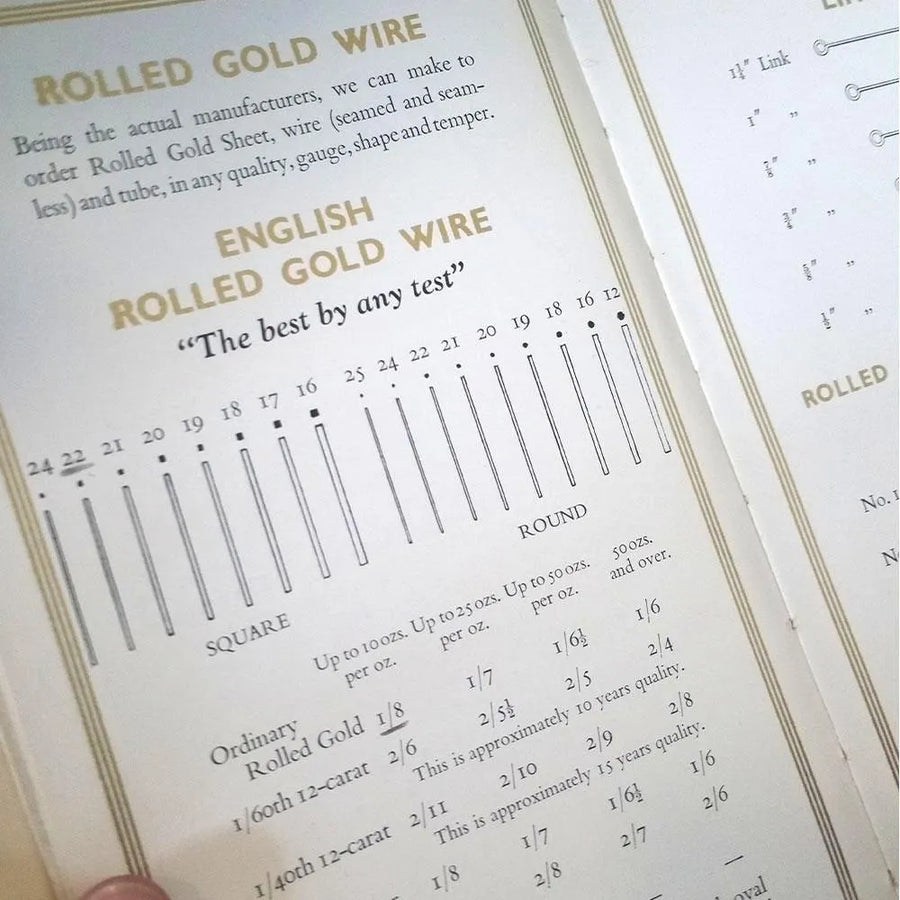 ROLLED GOLD WIRE
Being the actual manufacturers, we can make to
order Rolled Gold Sheet, wire (seamed and seam-
less) and tube, in any quality, gauge, shape and temper.
ENGLISH
ROLLED GOLD WIRE
“The best by any test”
24 22 21 20 19 18 17 16
25 24 22 21 20 19 18 16 12
SQUARE
ROUND
Up to 10 ozs. Up to 25 ozs. Up to 50 ozs. 50 ozs.
per oz. per oz. per oz. and over.
Ordinary
Rolled Gold 1/8 1/7 1/6½ 1/6
1/60th 12-carat 2/6 2/5½ 2/5 2/4
This is approximately 10 years quality.
1/40th 12-carat 2/11 2/10 2/9 2/8
This is approximately 15 years quality.
1/8 1/7 1/6½ 1/6
2/8 2/7 2/6
Link
1" "
⅞" "
¾" "
⅝" "
½" "
ROLLED